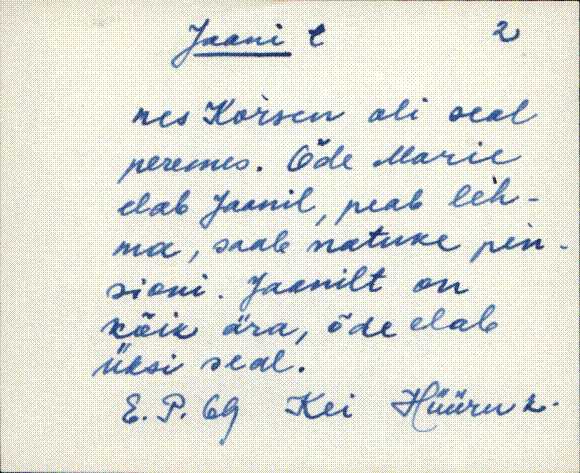 Jaani t 2
nes Korsen oli seal
peremes. Õde Marie
elab Jaanil, peab leh-
ma, saab natuke pen-
sioni. Jaanilt on
kõik ära, õde elab
üksi seal.
E. P. 69 Kei Hüüru k.